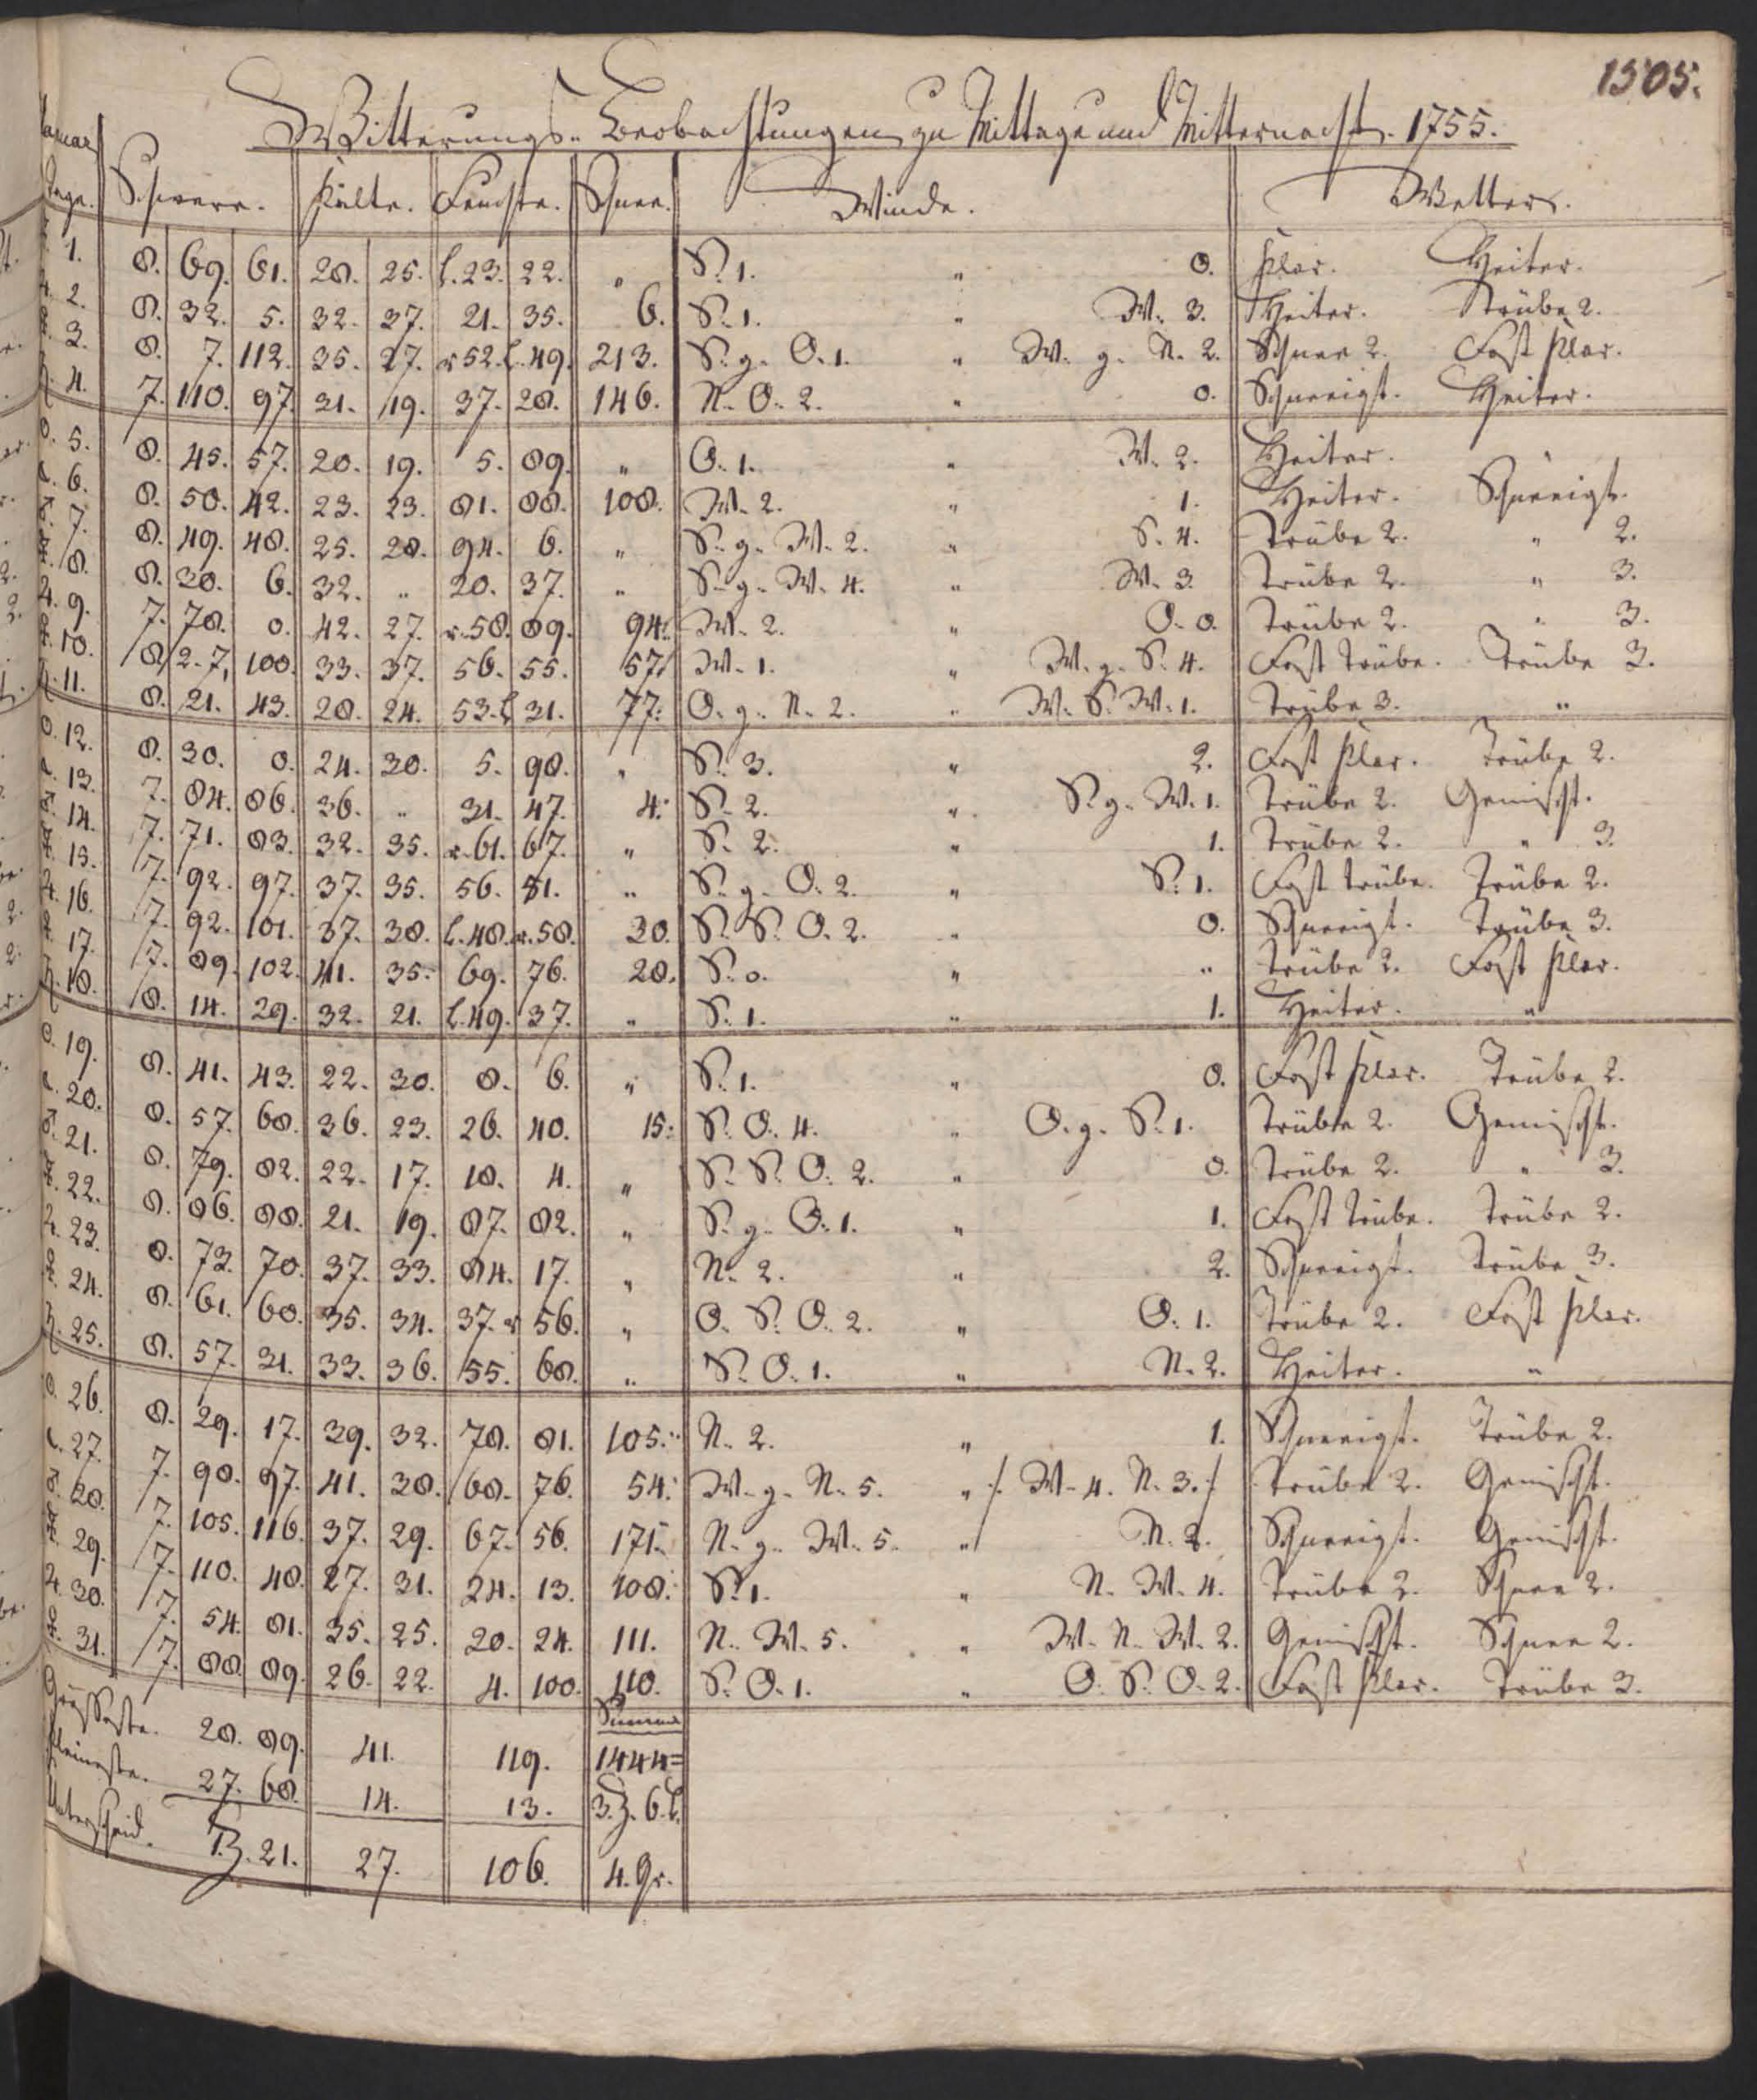 1505.
Witterungs-Beobachtungen zu Mittage und Mitternacht. 1755.
Januar
Tage. Schwere. Kälte. Feuchte. Schnee. Winde. Wetter.
☿ 1. 8. 69. 61. 28. 25. l. 23. 22. „ S. 1. „ 0. Klar. Heiter.
♃ 2. 8. 32. 5. 32. 37. 21. 35. 6. S. 1. „ W. 3. Heiter. Trübe 2.
♀ 3. 8. 7. 112. 35. 27. r 52. l. 49. 213. S. g. O. 1. „ W. g. N. 2. Schnee 2. Fast Klar.
♄ 4. 7. 110. 97. 31. 19. 37. 28. 146. N. O. 2. „ 0. Schneeigt. Heiter.
☉ 5. 8. 45. 57. 20. 19. 5. 89. „ O. 1. „ W. 2. Heiter. „
☾ 6. 8. 50. 42. 23. 23. 81. 88. 108. W. 2. „ 1. Heiter. Schneeigt.
♂ 7. 8. 49. 48. 25. 28. 94. 6. „ S. g. W. 2. „ S. 4. Trübe 2. „ 2.
☿ 8. 8. 30. 6. 32. „ 20. 37. „ S. g. W. 4. „ W. 3. Trübe 2. „ 3.
♃ 9. 7. 78. 0. 42. 27. r. 58. 89. 94: W. 2. „ O. 0. Trübe 2. „ 3.
♀ 10. 8. 2. 7. 100. 33. 37. 56. 55. 57: W. 1. „ W. g. S. 4. Fast Trübe. Trübe 3.
♄ 11. 8. 21. 43. 28. 24. 53. l. 31. 77: O. g. N. 2. „ W. S. W. 1. Trübe 3. „
☉ 12. 8. 30. 0. 24. 30. 5. 98. „ S. 3. „ 2. Fast Klar. Trübe 2.
☾ 13. 7. 84. 86. 36. „ 31. 47. 4: S. 2. „ S. g. W. 1. Trübe 2. Gemischt.
♂ 14. 7. 71. 83. 32. 35. r. 61. 67. „ S. 2. „ 1. Trübe 2. „ 3.
☿ 15. 7. 92. 97. 37. 35. 56. 51. „ S. g. O. 2. „ S. 1. Fast Trübe. Trübe 2.
♃ 16. 7. 92. 101. 37. 38. l. 48. r. 58. 30. S. S. O. 2. „ 0. Schneeigt. Trübe 3.
♀ 17. 7. 89. 102. 41. 35. 69. 76. 28. S. 0. „ „ Trübe 2. Fast Klar.
♄ 18. 8. 14. 29. 32. 21. l. 49. 37. „ S. 1. „ 1. Heiter. „
☉ 19. 8. 41. 43. 22. 30. 8. 6. „ S. 1. „ 0. Fast Klar. Trübe 2.
☾ 20. 8. 57. 68. 36. 23. 26. 40. 15: S. O. 4. „ O. g. S. 1. Trübe 2. Gemischt.
♂ 21. 8. 79. 82. 22. 17. 18. 4. „ S. S. O. 2. „ 0. Trübe 2. „ 3.
☿ 22. 8. 86. 88. 21. 19. 87. 82. „ S. g. O. 1. „ 1. Fast Trübe. Trübe 2.
♃ 23. 8. 73. 70. 37. 33. 84. 17. „ N. 2. „ 2. Schneeigt. Trübe 3.
♀ 24. 8. 61. 60. 35. 34. 37. r 56. „ O. S. O. 2. „ O. 1. Trübe 2. Fast Klar.
♄ 25. 8. 57. 31. 33. 36. 55. 68. „ S. O. 1. „ N. 2. Heiter. „
☉ 26. 8. 29. 17. 39. 32. 78. 81. 105. N. 2. „ 1. Schneeigt. Trübe 2.
☾ 27. 7. 98. 97. 41. 38. 68. 76. 54: W. g. N. 5. „ /: W. 4. N. 3. :/ Trübe 2. Gemischt.
♂ 28. 7. 105. 116. 37. 29. 67. 56. 171. N. g. W. 5. „ N. 2. Schneeigt. Gemischt.
☿ 29. 7. 110. 48. 27. 31. 24. 13. 108: S. 1. „ N. W. 4. Trübe 2. Schnee 2.
♃ 30. 7. 54. 81. 35. 25. 20. 24. 111. N. W. 5. „ W. N. W. 2. Gemischt. Schnee 2.
♀ 31. 7. 88. 89. 26. 22. 4. 100. 110. S. O. 1. „ O. S. O. 2. Fast Klar. Trübe 3.
Summa
Grösseste. 28. 89. 41. 119. 1444=
Kleineste. 27. 68. 14. 13. 3. Z. 6. L.
Unterscheid. 1. Z. 21. 27. 106. 4. Gr.